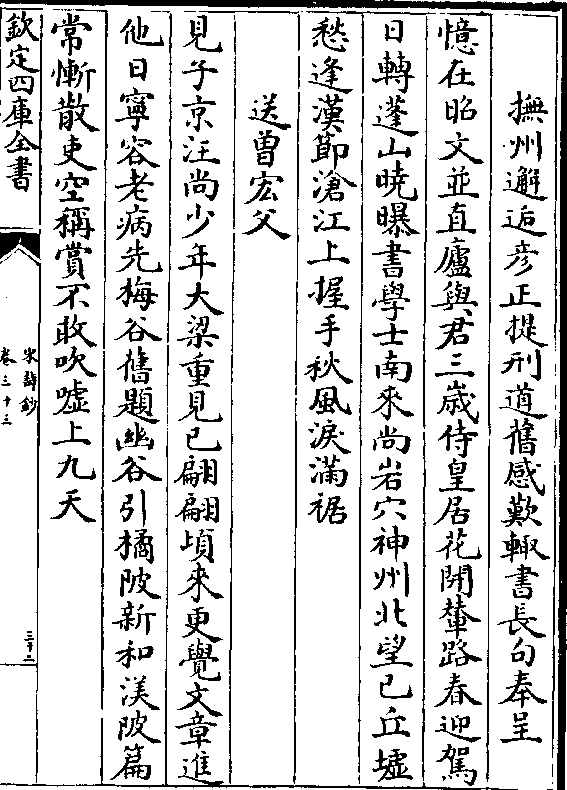 撫州邂逅彦正提刑道舊感歎輙書長句奉呈
憶在昭文並直廬與君三歲侍皇居花開輦路春迎駕
日轉蓬山曉曝書學士南來尚岩穴神州北望已丘墟
愁逢漢節滄江上握手秋風淚滿裾
送曾宏父
見子京汪尚少年大梁重見已翩翩頃來更覺文章進
他日寧容老病先梅谷舊題幽谷引橘陂新和渼陂篇
常慚散吏空稱賞不敢吹嘘上九天
欽定四庫全書
宋詩鈔
卷三十三
三十二